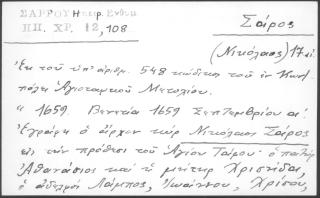 ΣΑΡΡΟΥ Ηπειρ. Ενθυμ.
ΗΠ. ΧΡ. 12, 108
Σάρος
(Νικόλαος) 17 αἰ.
Ἐκ τοῦ ὑπ' ἀριθμ. 548 κώδικος τοῦ ἐν Κων)
πόλει Ἁγιοταφικοῦ Μετοχίου.
"1659. Βενετία 1659 Σεπτεμβρίου αʹ.
Ἐγράφη ὁ ἄρχων κὺρ Νικόλαος Σάρος
εἰς τὴν πρόθεσι τοῦ Ἁγίου Τάφου· ὁ πατὴρ
Ἀθανάσιος καὶ ἡ μήτηρ Χρισηίδα,
ὁ ἀδελφὸς Λάμπος, Ἰωάννου, Χρίσου,